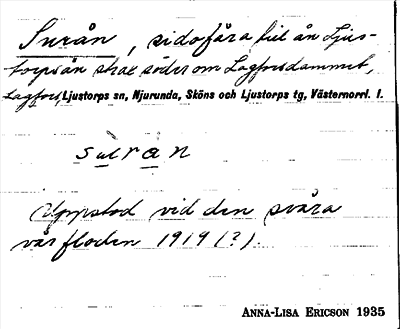 Surån, sidofåra till ån Ljus-
torpsån strax söder om Lagforsdammet,
Lagfors, Ljustorps sn, Njurunda, Sköns och Ljustorps tg, Västernorrl. l.
suran
Uppstod vid den svåra
vårfloden 1919 (?).
ANNA-LISA ERICSON 1935